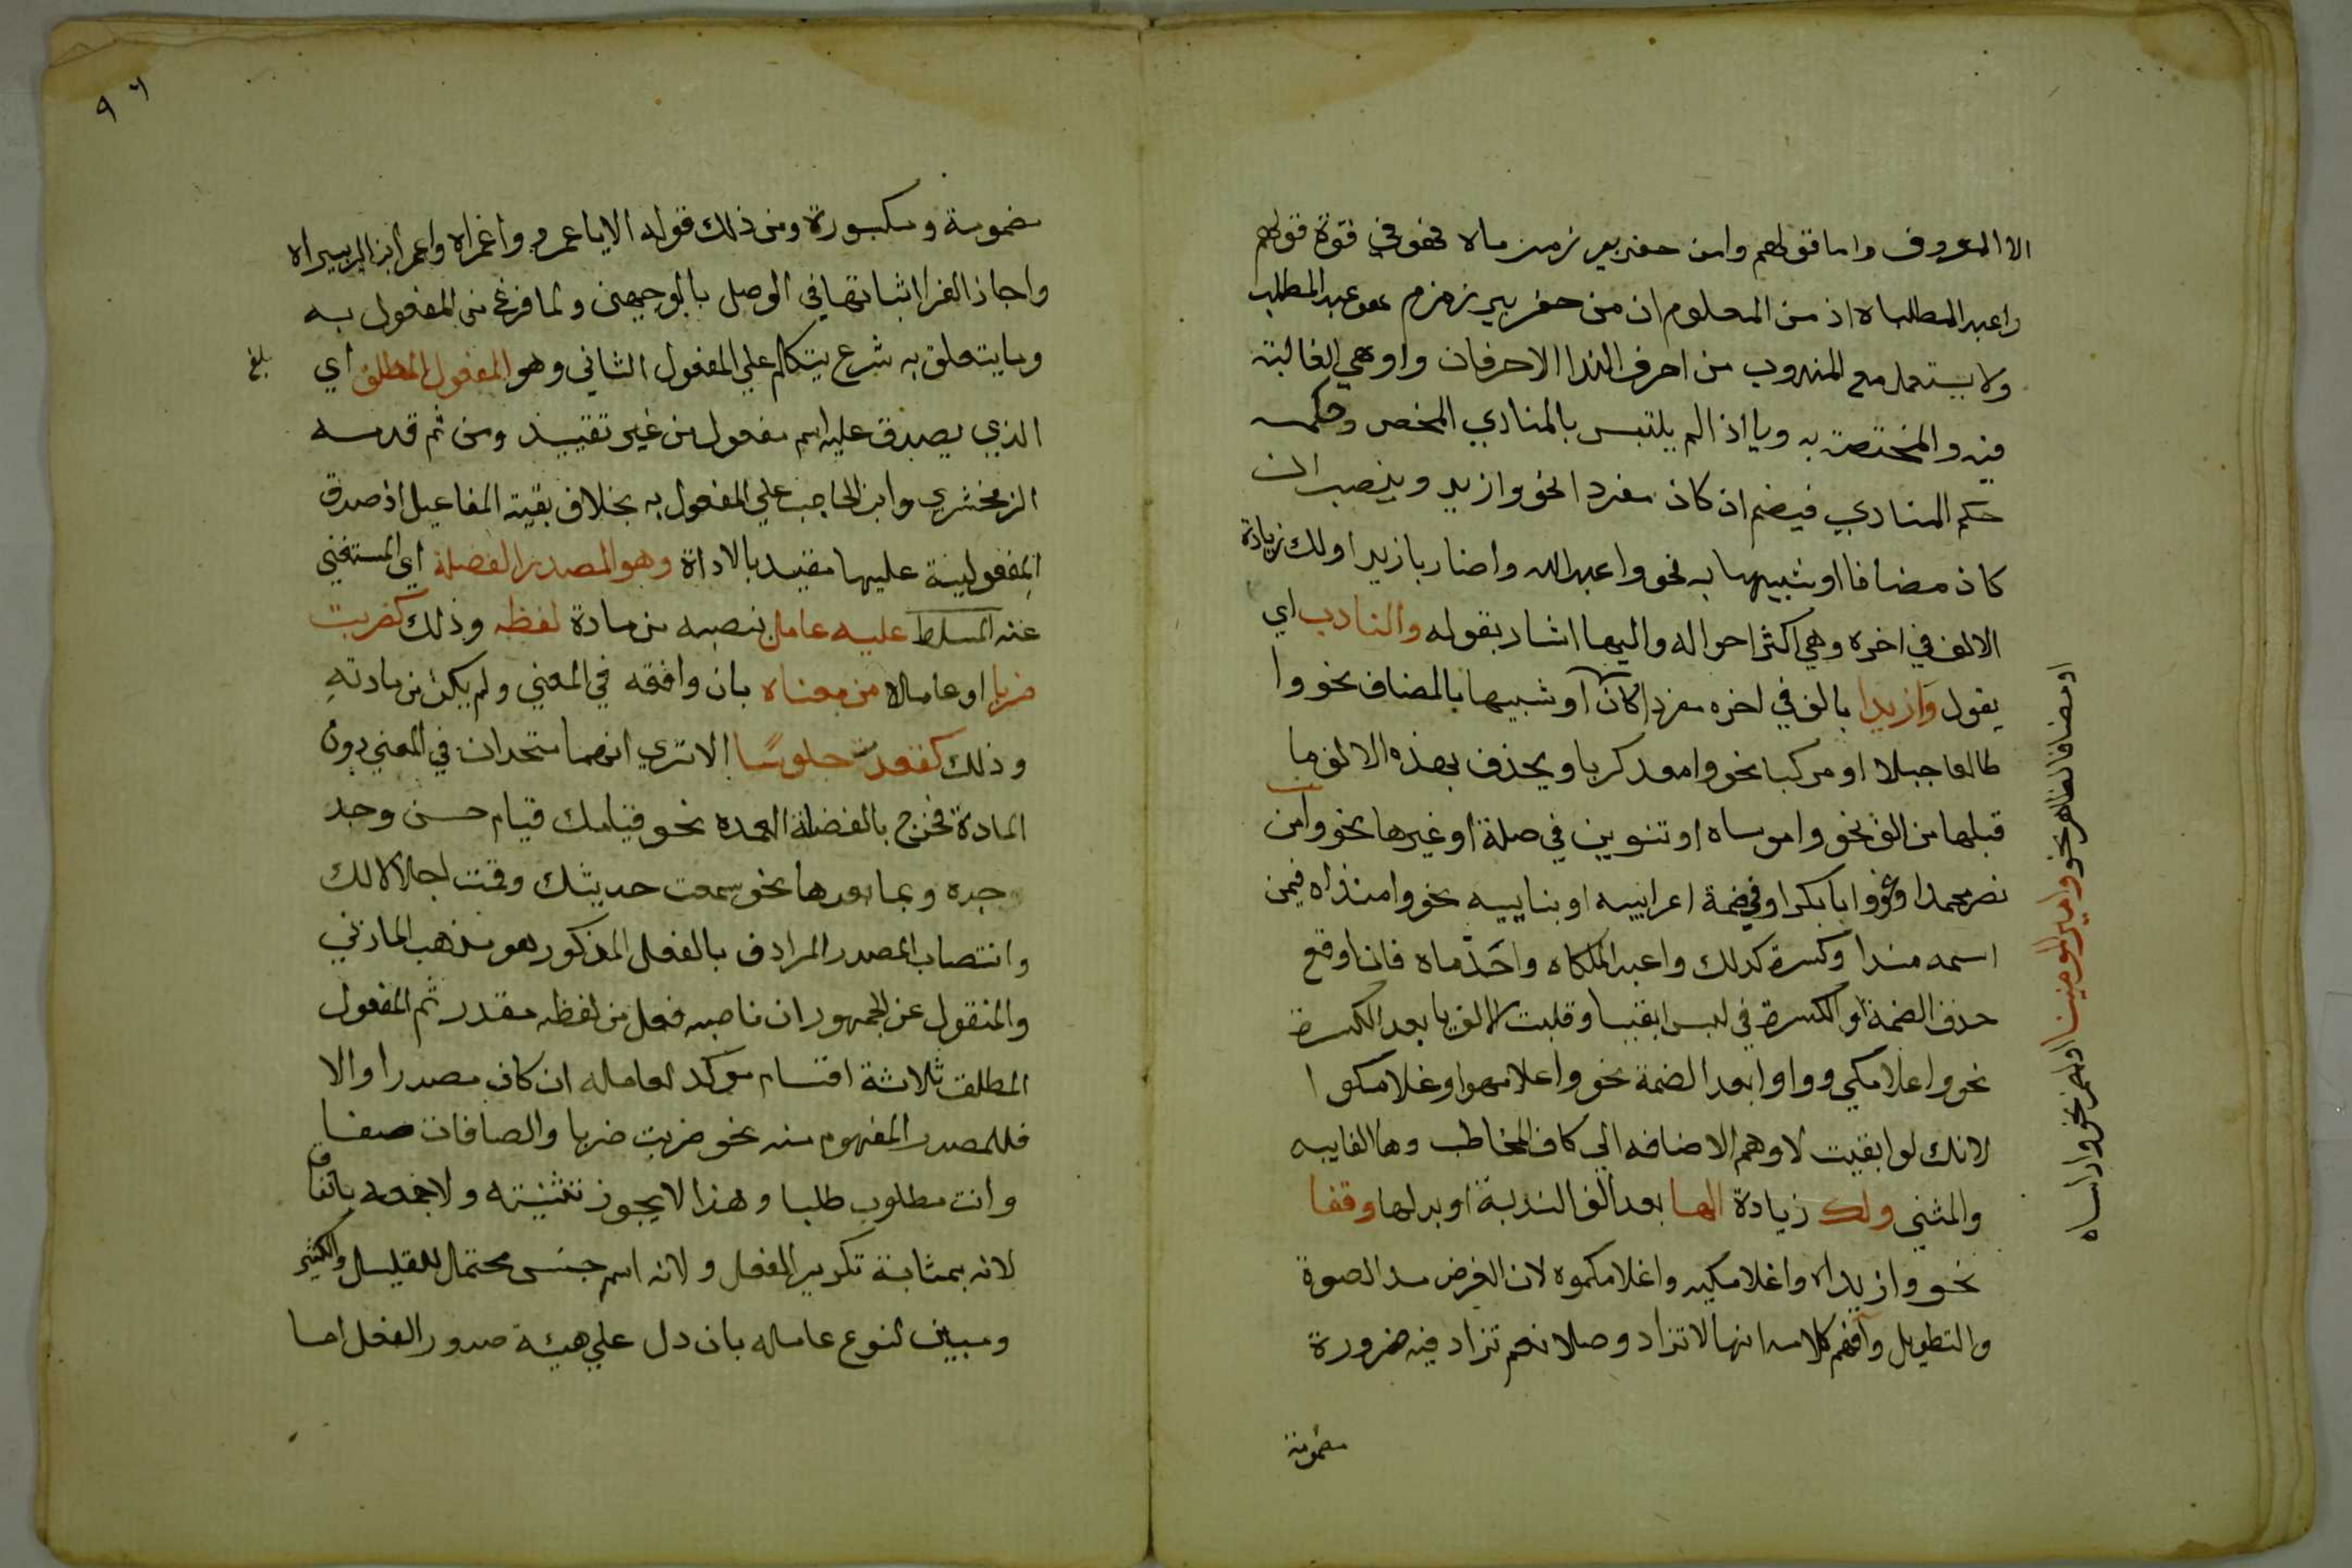 الا المعروف واما قولهم وامن حفر بير زمزماه فهو في قوة قولهم
واعبد المطلباه اذ من المعلوم ان من حفر بير زمزم هو عبد المطلب
ولا يستعمل مع المندوب من احرف الندا الا حرفان وا وهي الغالبة
فيه والمختصة به ويا اذا لم يلتبس بالمنادي المحض وحكمه
حكم المنادي فيضم ان كان مفردا نحو وازيد وينصب ان
كان مضافا او شبيها به نحو واعبد الله واضاربا زيدا ولك زيادة
الالف في اخره وهي اكثر احواله واليها اشار بقوله والنادب اي
يقول وازيدا بالف في اخره مفردا كان او شبيها بالمضاف نحو وا
طالعا جبلا او مركبا نحو وامعدكربا ويحذف بهذه الالف ما
قبلها من الف نحو واموساه او تنوين في صلة او غيرها نحو وامن
نصر محمدا ونحو وابا بكرا وفي ضمة اعرابيه او بناييه نحو وامنذاه فيمن
اسمه منذا وكسرة كذلك واعبد الملكاه واحذماه فان اوقع
حذف الضمة او الكسرة في لبس ابقيا وقلبت الالف يا بعد الكسرة
نحو واغلامكي وواوا بعد الضمة نحو واغلامهوا وغلامكموا
لانك لو ابقيت لا وهم الاضافه الي كاف المخاطب وها الغايبه
والمثني ولك زيادة الها بعد الف الندبة او بدلها وقفا
نحو وازيداه واغلامكيه واغلامكموه لان الغرض مد الصوة
والتطويل وافهم كلامه انها لا تزاد وصلا نعم تزاد فيه ضرورة
مضمومة
او مضافا لظاهر نحو وا امير المومنينا او لضمير نحو واراساه
٩٦
مضمومة ومكسورة ومن ذلك قوله الا يا عمرو واعمراه واعمرا بن الزبيراه
واجاز الفرا اثباتها في الوصل بالوجهين ولما فرغ من المفعول به
وما يتعلق به شرع يتكلم علي المفعول الثاني وهو المفعول المطلق اي
بلغ
الذي يصدق عليه اسم مفعول من غير تقييد ومن ثم قدمه
الزمخشري وابن الحاجب علي المفعول به بخلاف بقية المفاعيل اذ صدق
المفعولية عليها مقيد بالاداة وهو المصدر الفضلة اي المستغني
عنه المسلط عليه عامل ينصبه من مادة لفظه وذلك كضربت
ضربا او عاملا من معناه بان وافقه في المعني ولم يكن من مادته
وذلك كقعدت جلوسا الا تري انهما متحدان في المعني دون
المادة فخرج بالفضلة العمده نحو قيامك قيام حسن وجد
جده وبما بعدها نحو سمعت حديثك وقمت اجلالا لك
وانتصاب المصدر المرادف بالفعل المذكور هو مذهب المازني
والمنقول عن الجمهور ان ناصبه فعل من لفظه مقدر ثم المفعول
المطلق ثلاثة اقسام موكد لعامله ان كان مصدرا والا
فللمصدر المفهوم منه نحو ضربت ضربا والصافات صفا
وانت مطلوب طلبا وهذا لا يجوز تثنيته ولا جمعه باتفاق
لانه بمثابة تكرير الفعل ولانه اسم جنس محتمل للقليل والكثير
ومبين لنوع عامله بان دل علي هيئة صدور الفعل اما